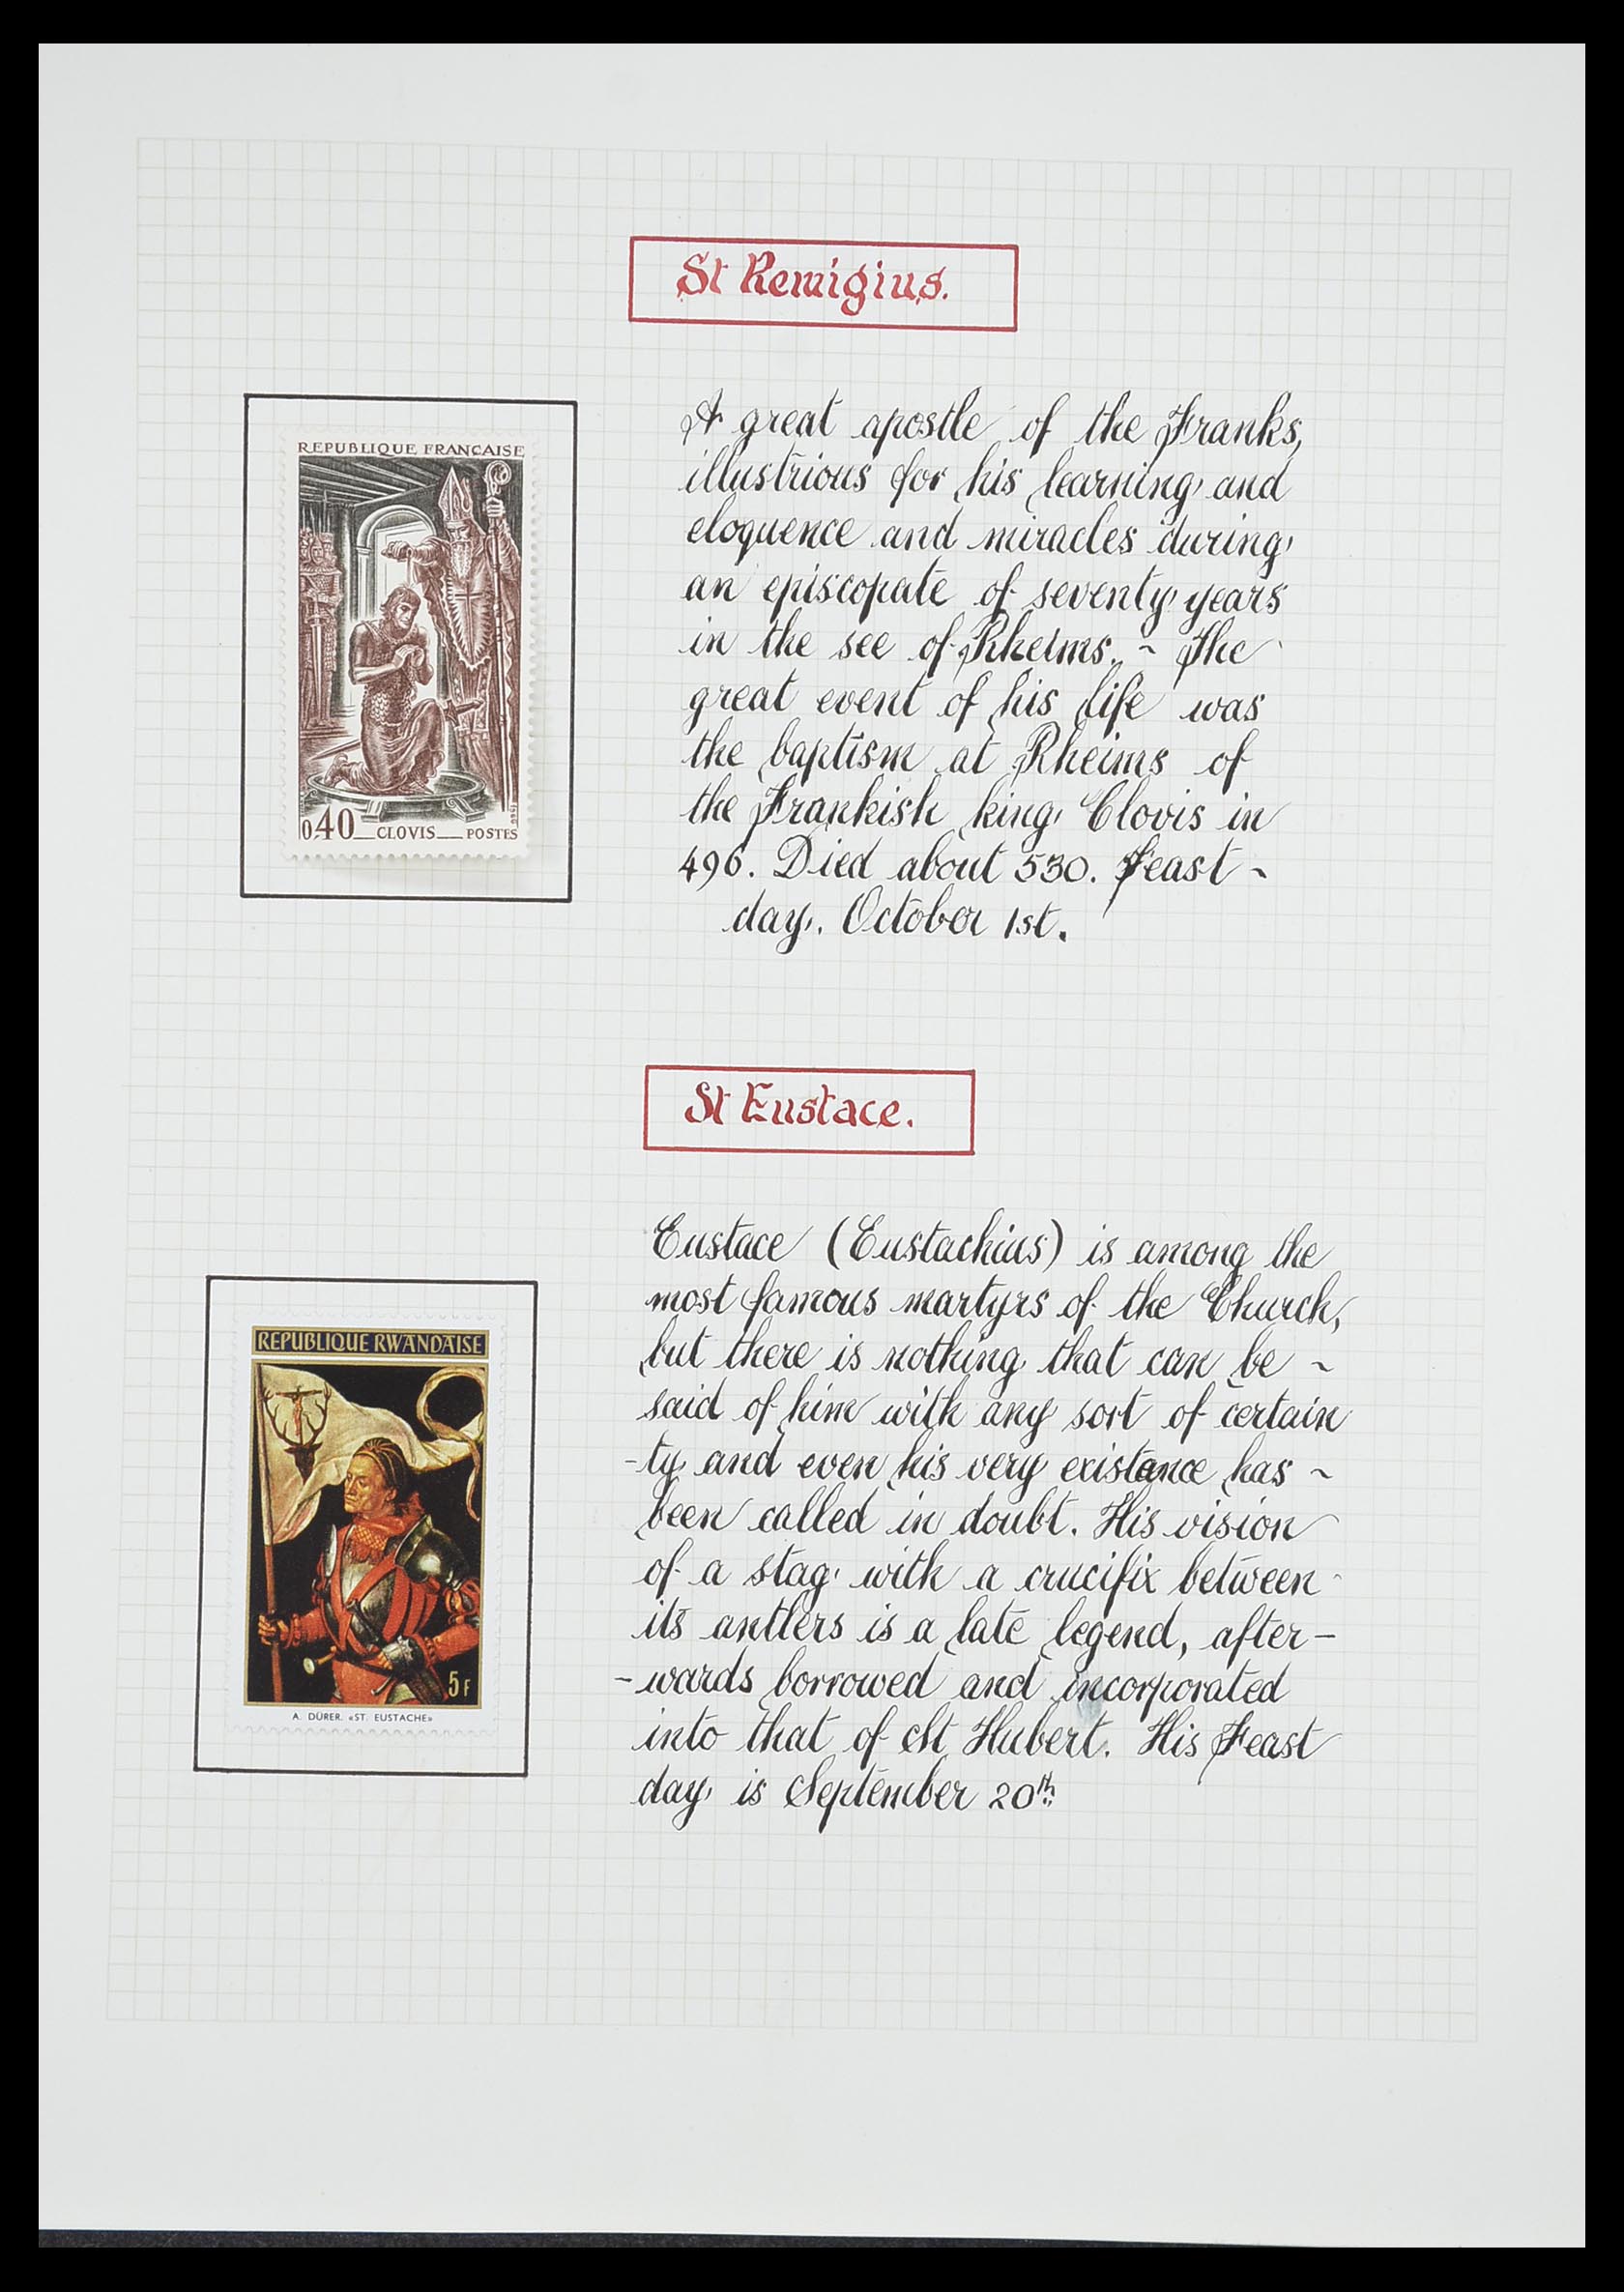 St Remigius.
REPUBLIQUE FRANCAISE
0,40 CLOVIS POSTES
1966
A great apostle of the Franks,
illustrious for his learning and
eloquence and miracles during
an episcopate of seventy years
in the see of Rheims. ~ The
great event of his life was
the baptism at Rheims of
the Frankish king Clovis in
496. Died about 530. Feast ~
day. October 1st.
St Eustace.
REPUBLIQUE RWANDAISE
5F
A. DÜRER. «ST. EUSTACHE»
Eustace (Eustachius) is among the
most famous martyrs of the Church,
but there is nothing that can be ~
said of him with any sort of certain
-ty and even his very existance has ~
been called in doubt. His vision
of a stag with a crucifix between
its antlers is a late legend, after-
-wards borrowed and incorporated
into that of St Hubert. His Feast
day is September 20th